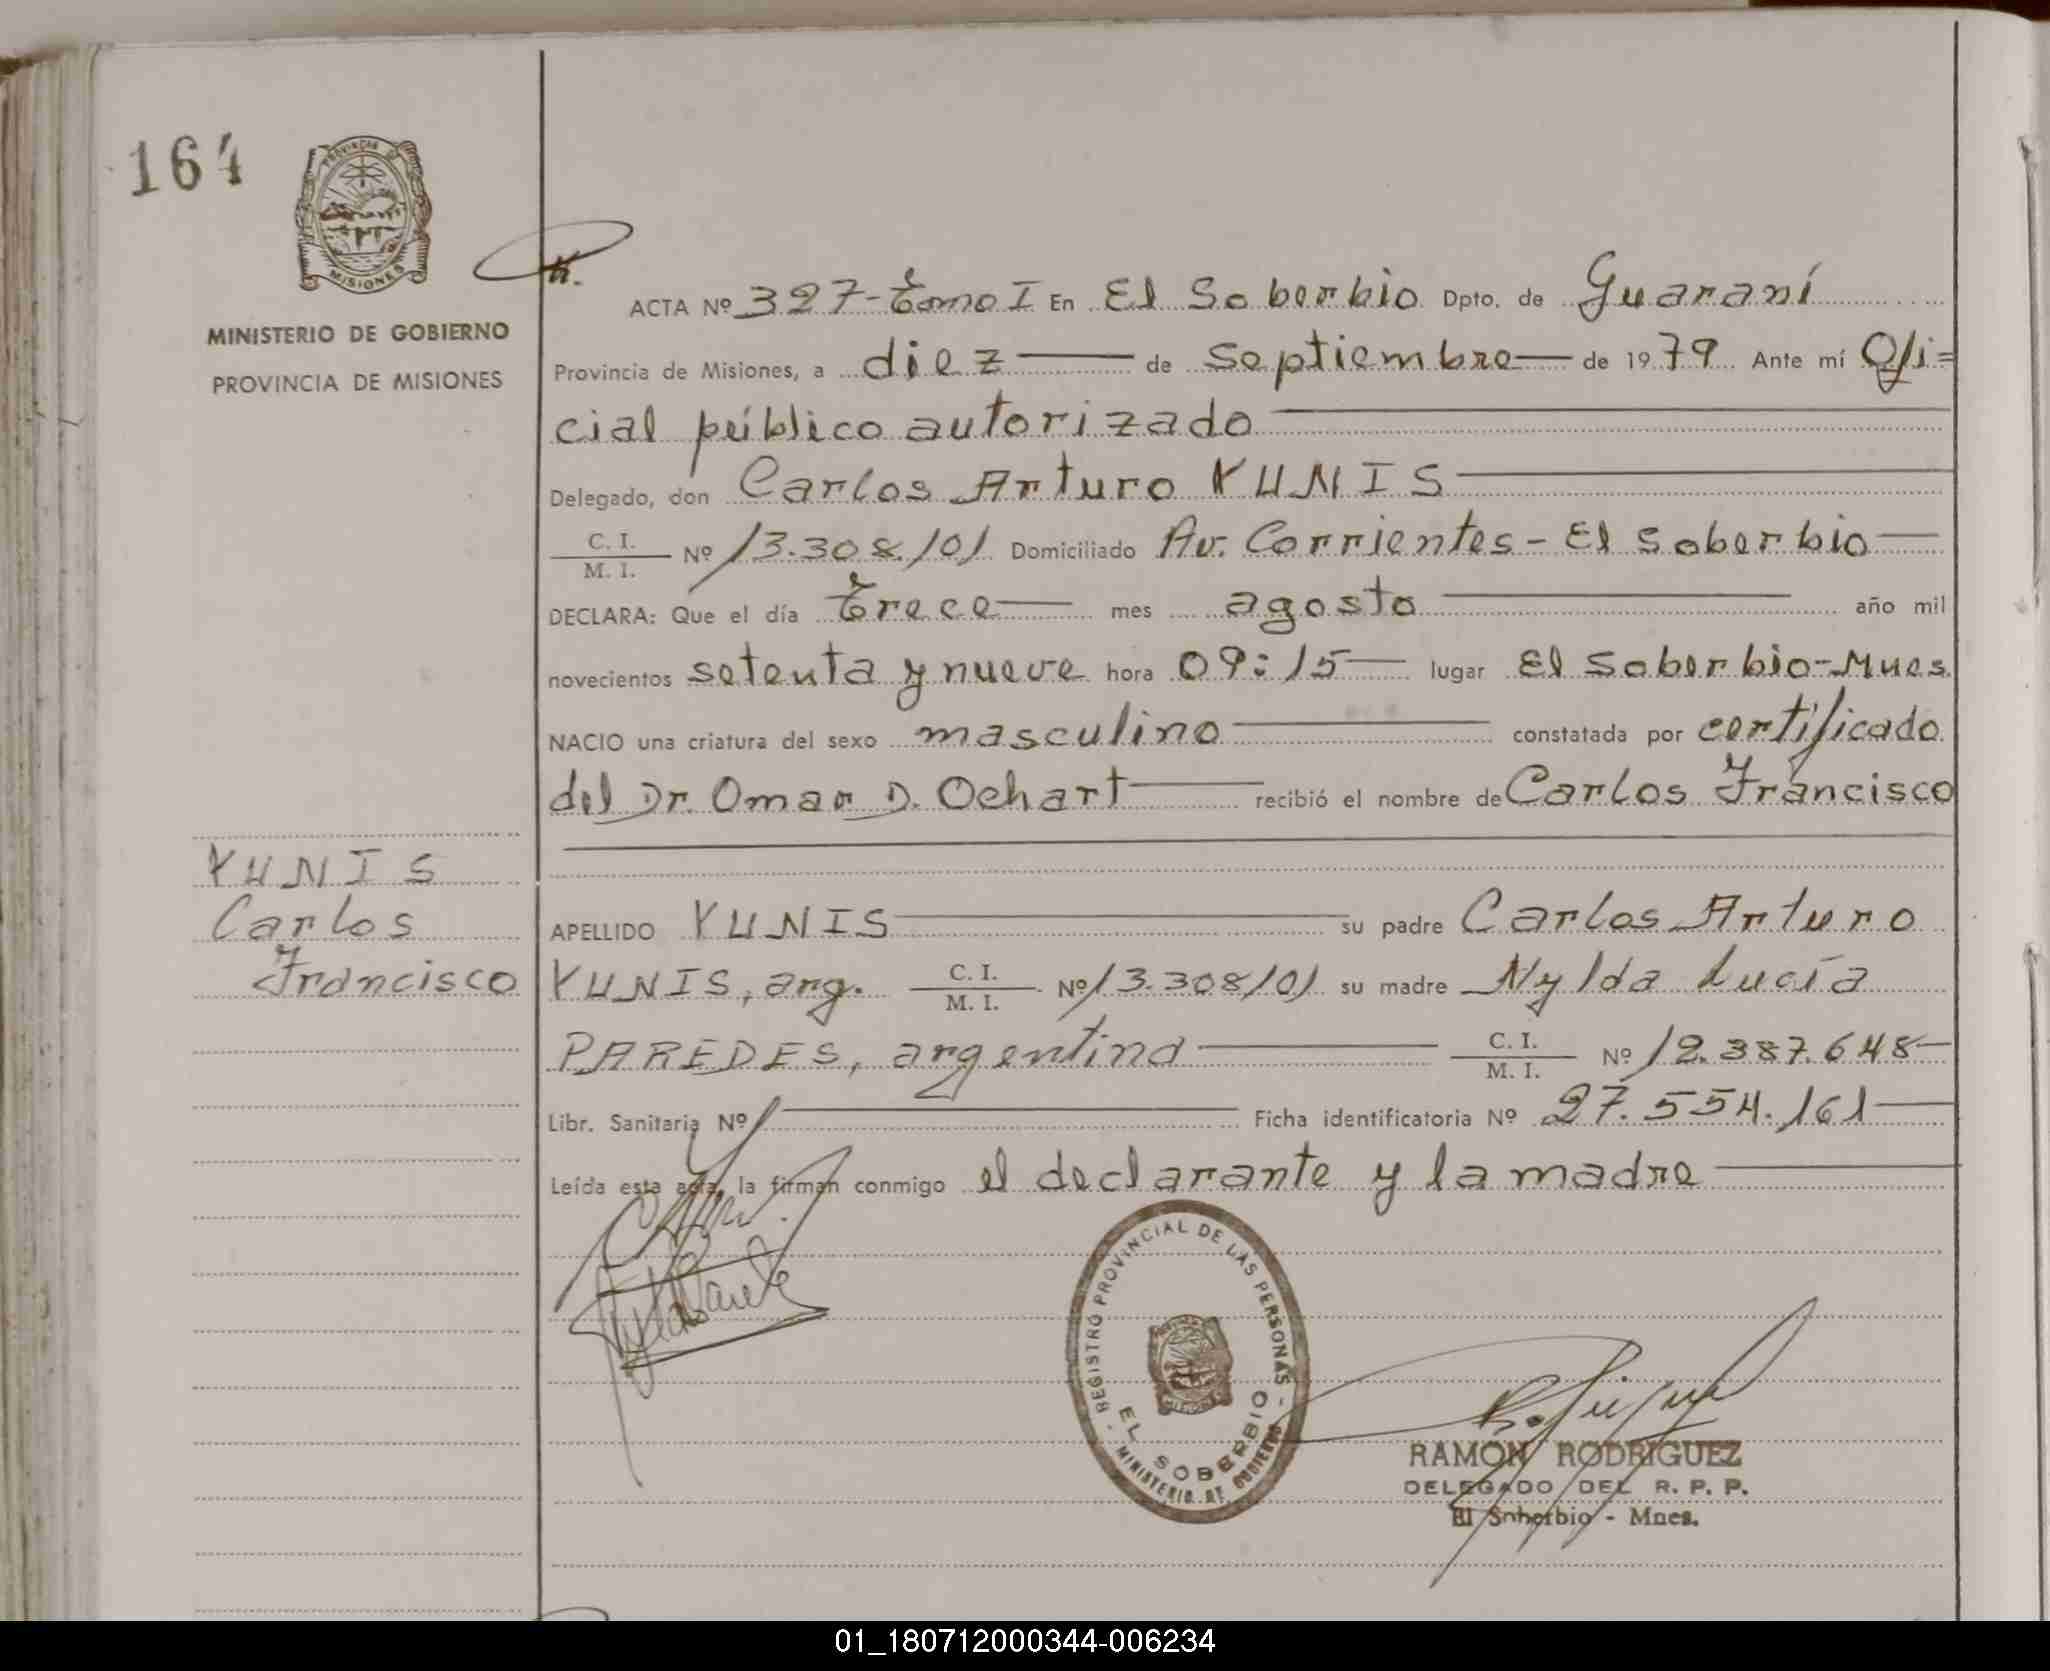 164
PROVINCIA DE
MISIONES
MINISTERIO DE GOBIERNO
PROVINCIA DE MISIONES
ACTA Nº 327-Tomo I En El Soberbio Dpto. de Guaraní
Provincia de Misiones, a diez de septiembre de 1979 Ante mí Ofi=
cial público autorizado
Delegado, don Carlos Arturo YUNIS
C. I.
M. I. Nº 13.308.101 Domiciliado Av. Corrientes - El Soberbio
DECLARA: Que el día Trece mes agosto año mil
novecientos setenta y nueve hora 09:15 lugar El Soberbio-Mnes
NACIO una criatura del sexo masculino constatada por certificado
del Dr. Omar D. Ochart recibió el nombre de Carlos Francisco
YUNIS
Carlos
Francisco
APELLIDO YUNIS su padre Carlos Arturo
YUNIS, arg. C. I.
M. I. Nº 13.308101 su madre Nylda Lucía
PAREDES, argentina C. I.
M. I. Nº 12.387.648
Libr. Sanitaria Nº Ficha identificatoria Nº 27.554.161
Leída esta acta, la firman conmigo el declarante y la madre
REGISTRO PROVINCIAL DE LAS PERSONAS
EL SOBERBIO
MINISTERIO DE GOBIERNO
RAMON RODRIGUEZ
DELEGADO DEL R. P. P.
El Soberbio - Mnes.
01_180712000344-006234